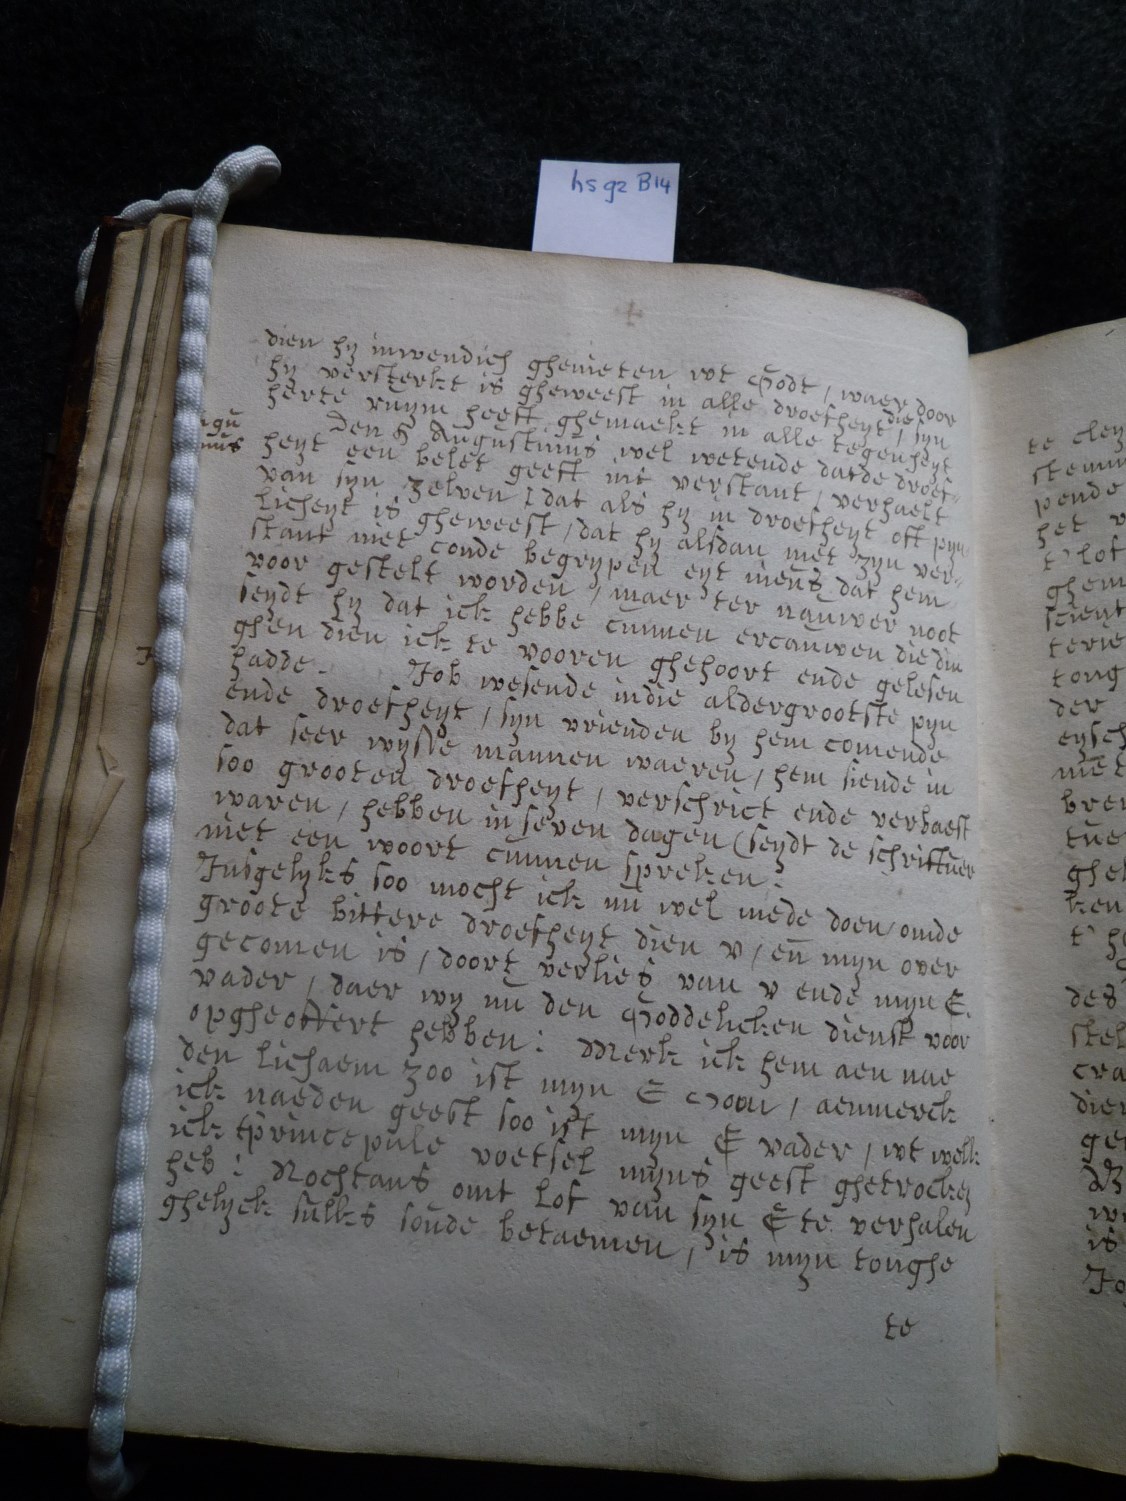 hs gz B14
dien hy inwendich ghenieten wt Godt, waer door
hy versterkt is gheweest in alle droefheyt, die syn
herte ruym heeft ghemaekt in alle tegenheyt
Den S Augustinus wel wetende datde droef-
heyt een belet geeft int verstant, verhaelt
van syn zelven dat als hy in droefheyt oft pyn
licheyt is gheweest, dat hy alsdan met zyn ver-
stant niet conde begrypen eyt niens dat hem
voor gestelt worden, maer ter nauwer noot
seydt hy dat ick hebbe cunnen ercauwen die din
ghen dien ick te vooren ghehoort ende gelesen
hadde. Job wesende indie aldergrootste pyn
ende droefheyt, syn vrienden by hem comende
dat seer wysse mannen waeren, hem siende in
soo grooten droefheyt, verschrict ende verbaest
waren, hebben in seven dagen (seydt de schrittuer
niet een woort cunnen spreken:
Insgelyks soo mocht ick nu wel mede doen, omde
groote bittere droefheyt dien v, en mijn over
gecomen is, doort verlies van v ende mijn E.
vader, daer wy nu den Goddelicken dienst voor
opgheoffert hebben: Merk ick hem aen nae
den lichaem zoo ist mijn E Soon, aenmerck
ick naeden geest soo ist mijn E vader, wt welk
ick tprincepale voetsel mijns geest ghetrocken
heb: Nochtans omt lof van syn E te verhalen
ghelyck sulks soude betaemen, is mijn tonghe
te
gu
nus
te
stemm
pende
het
t'lof
ghem
terie
tong
der
eysch
niet
bren
tue
ghel
ken
des
stel
cra
dien
ge
is
Jo